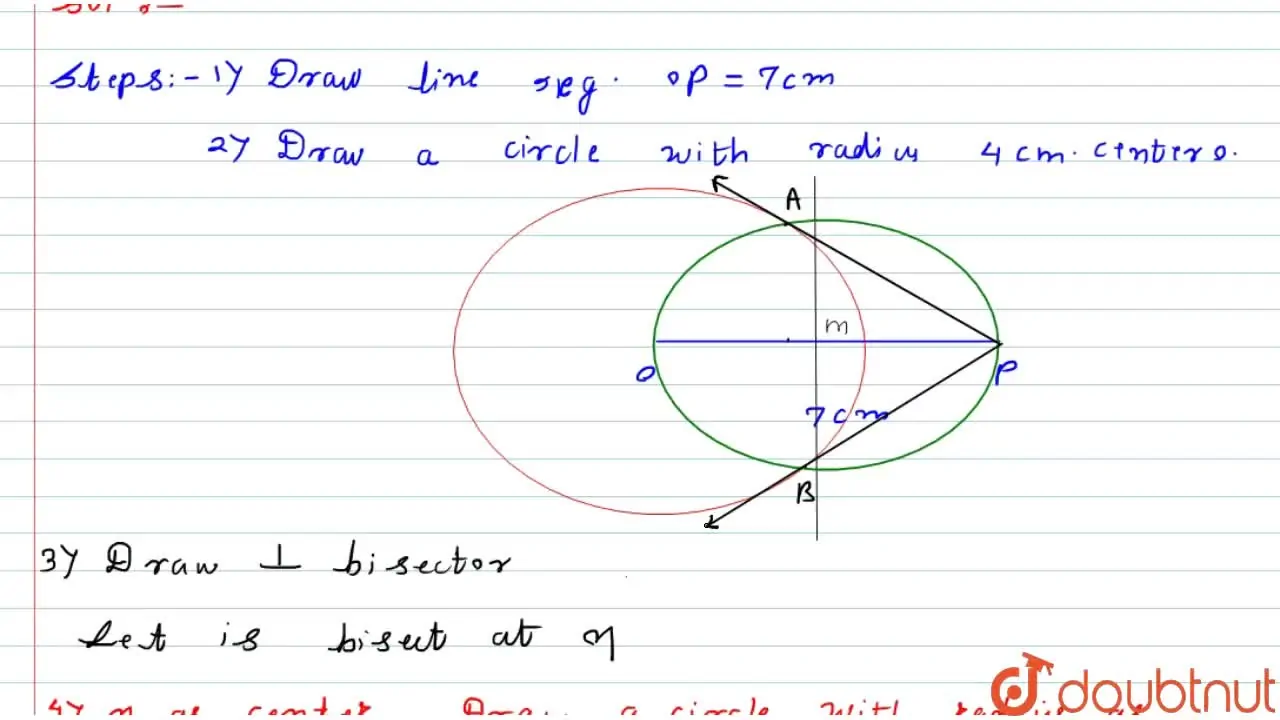 Steps:- 1) Draw line seg. OP = 7cm
2) Draw a circle with radius 4cm. center O.
A
m
O
P
7cm
B
3) Draw ⊥ bisector
Let is bisect at M
4) M as center Draw a circle with radius as
doubtnut